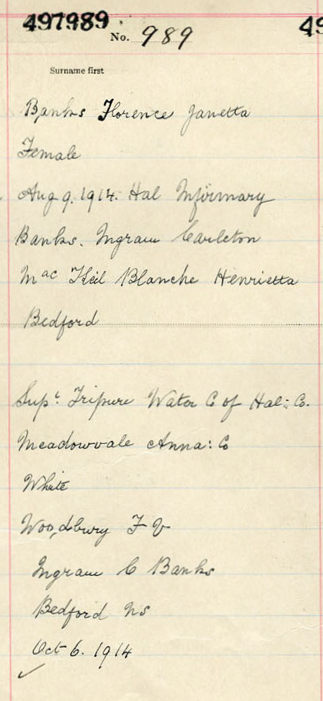 497989
No. 989
49
Surname first
Banks Florence Janetta
Female
Aug 9. 1914. Hal Infirmary
Banks. Ingram Carleton
Mac Keil Blanche Henrietta
Bedford
Supt. Tripure Water C of Hal: Co.
Meadowvale Anna: Co
White
Woodbury F
Ingram C Banks
Bedford NS
Oct 6. 1914